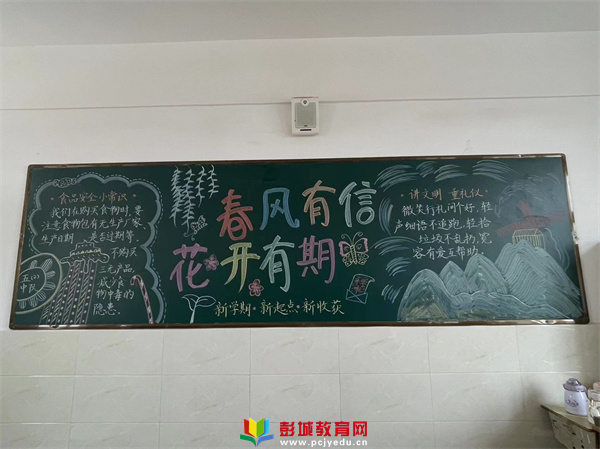 食品安全小常识
我们在购买食物时，要
注意食物包有无生产厂家、
生产日期、是否过期等，
不购买
三无产品，
减少食
物中毒的
隐患。
五(1)
中队
春风有信
花开有期
新学期·新起点·新收获
讲文明 重礼仪
微笑行礼问个好，轻
声细语不追跑，轻拾
垃圾不乱扔，宽
容有爱互帮助。
彭城教育网
www.pcjyedu.cn